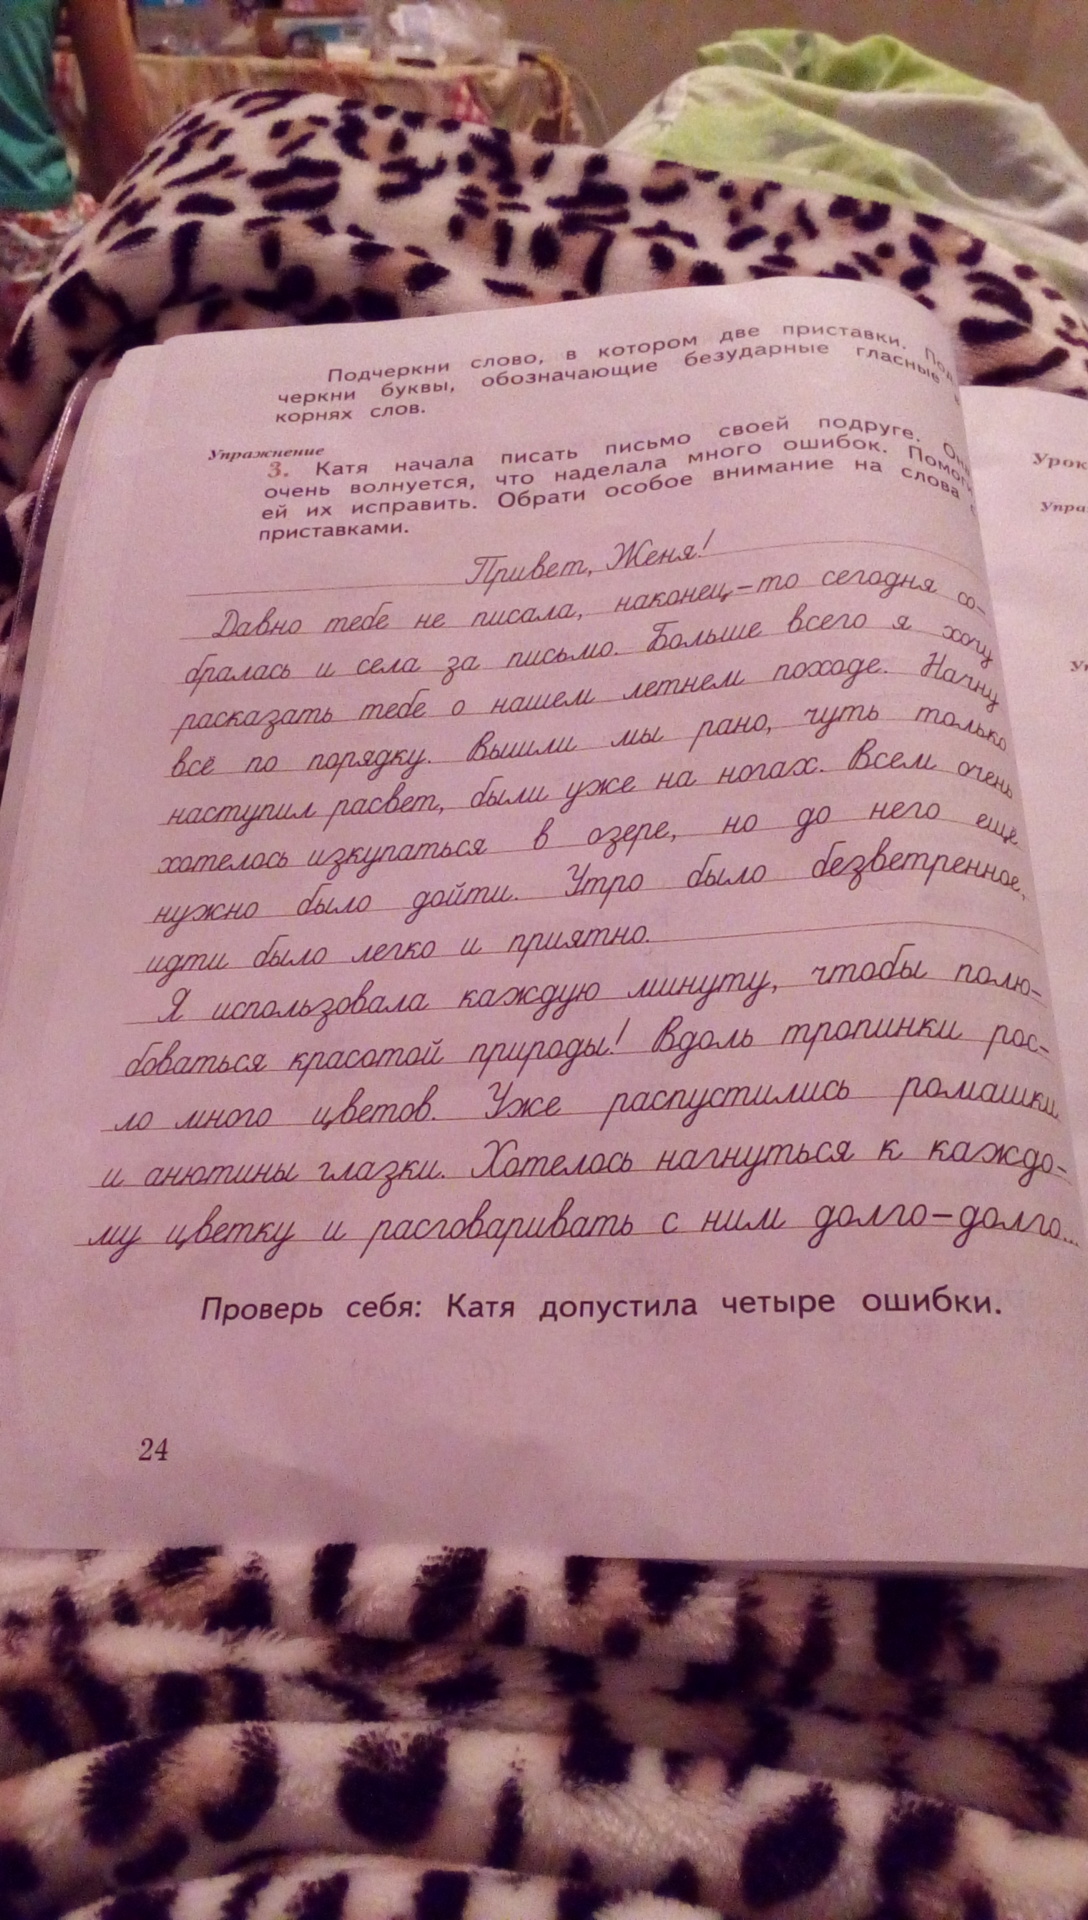 Подчеркни слово, в котором две приставки. Под
черкни буквы, обозначающие безударные гласные в
корнях слов.
Упражнение
3. Катя начала писать письмо своей подруге. Она
очень волнуется, что наделала много ошибок. Помоги
ей их исправить. Обрати особое внимание на слова с
приставками.
Привет, Женя!
Давно тебе не писала, наконец-то сегодня со-
бралась и села за письмо. Больше всего я хочу
расказать тебе о нашем летнем походе. Начну
всё по порядку. Вышли мы рано, чуть только
наступил расвет, были уже на ногах. Всем очень
хотелось изкупаться в озере, но до него еще
нужно было дойти. Утро было безветренное,
идти было легко и приятно.
Я использовала каждую минуту, чтобы полю-
боваться красотой природы! Вдоль тропинки рос-
ло много цветов. Уже распустились ромашки
и анютины глазки. Хотелось нагнуться к каждо-
му цветку и расговаривать с ним долго-долго...
Проверь себя: Катя допустила четыре ошибки.
24
Урок
Упра